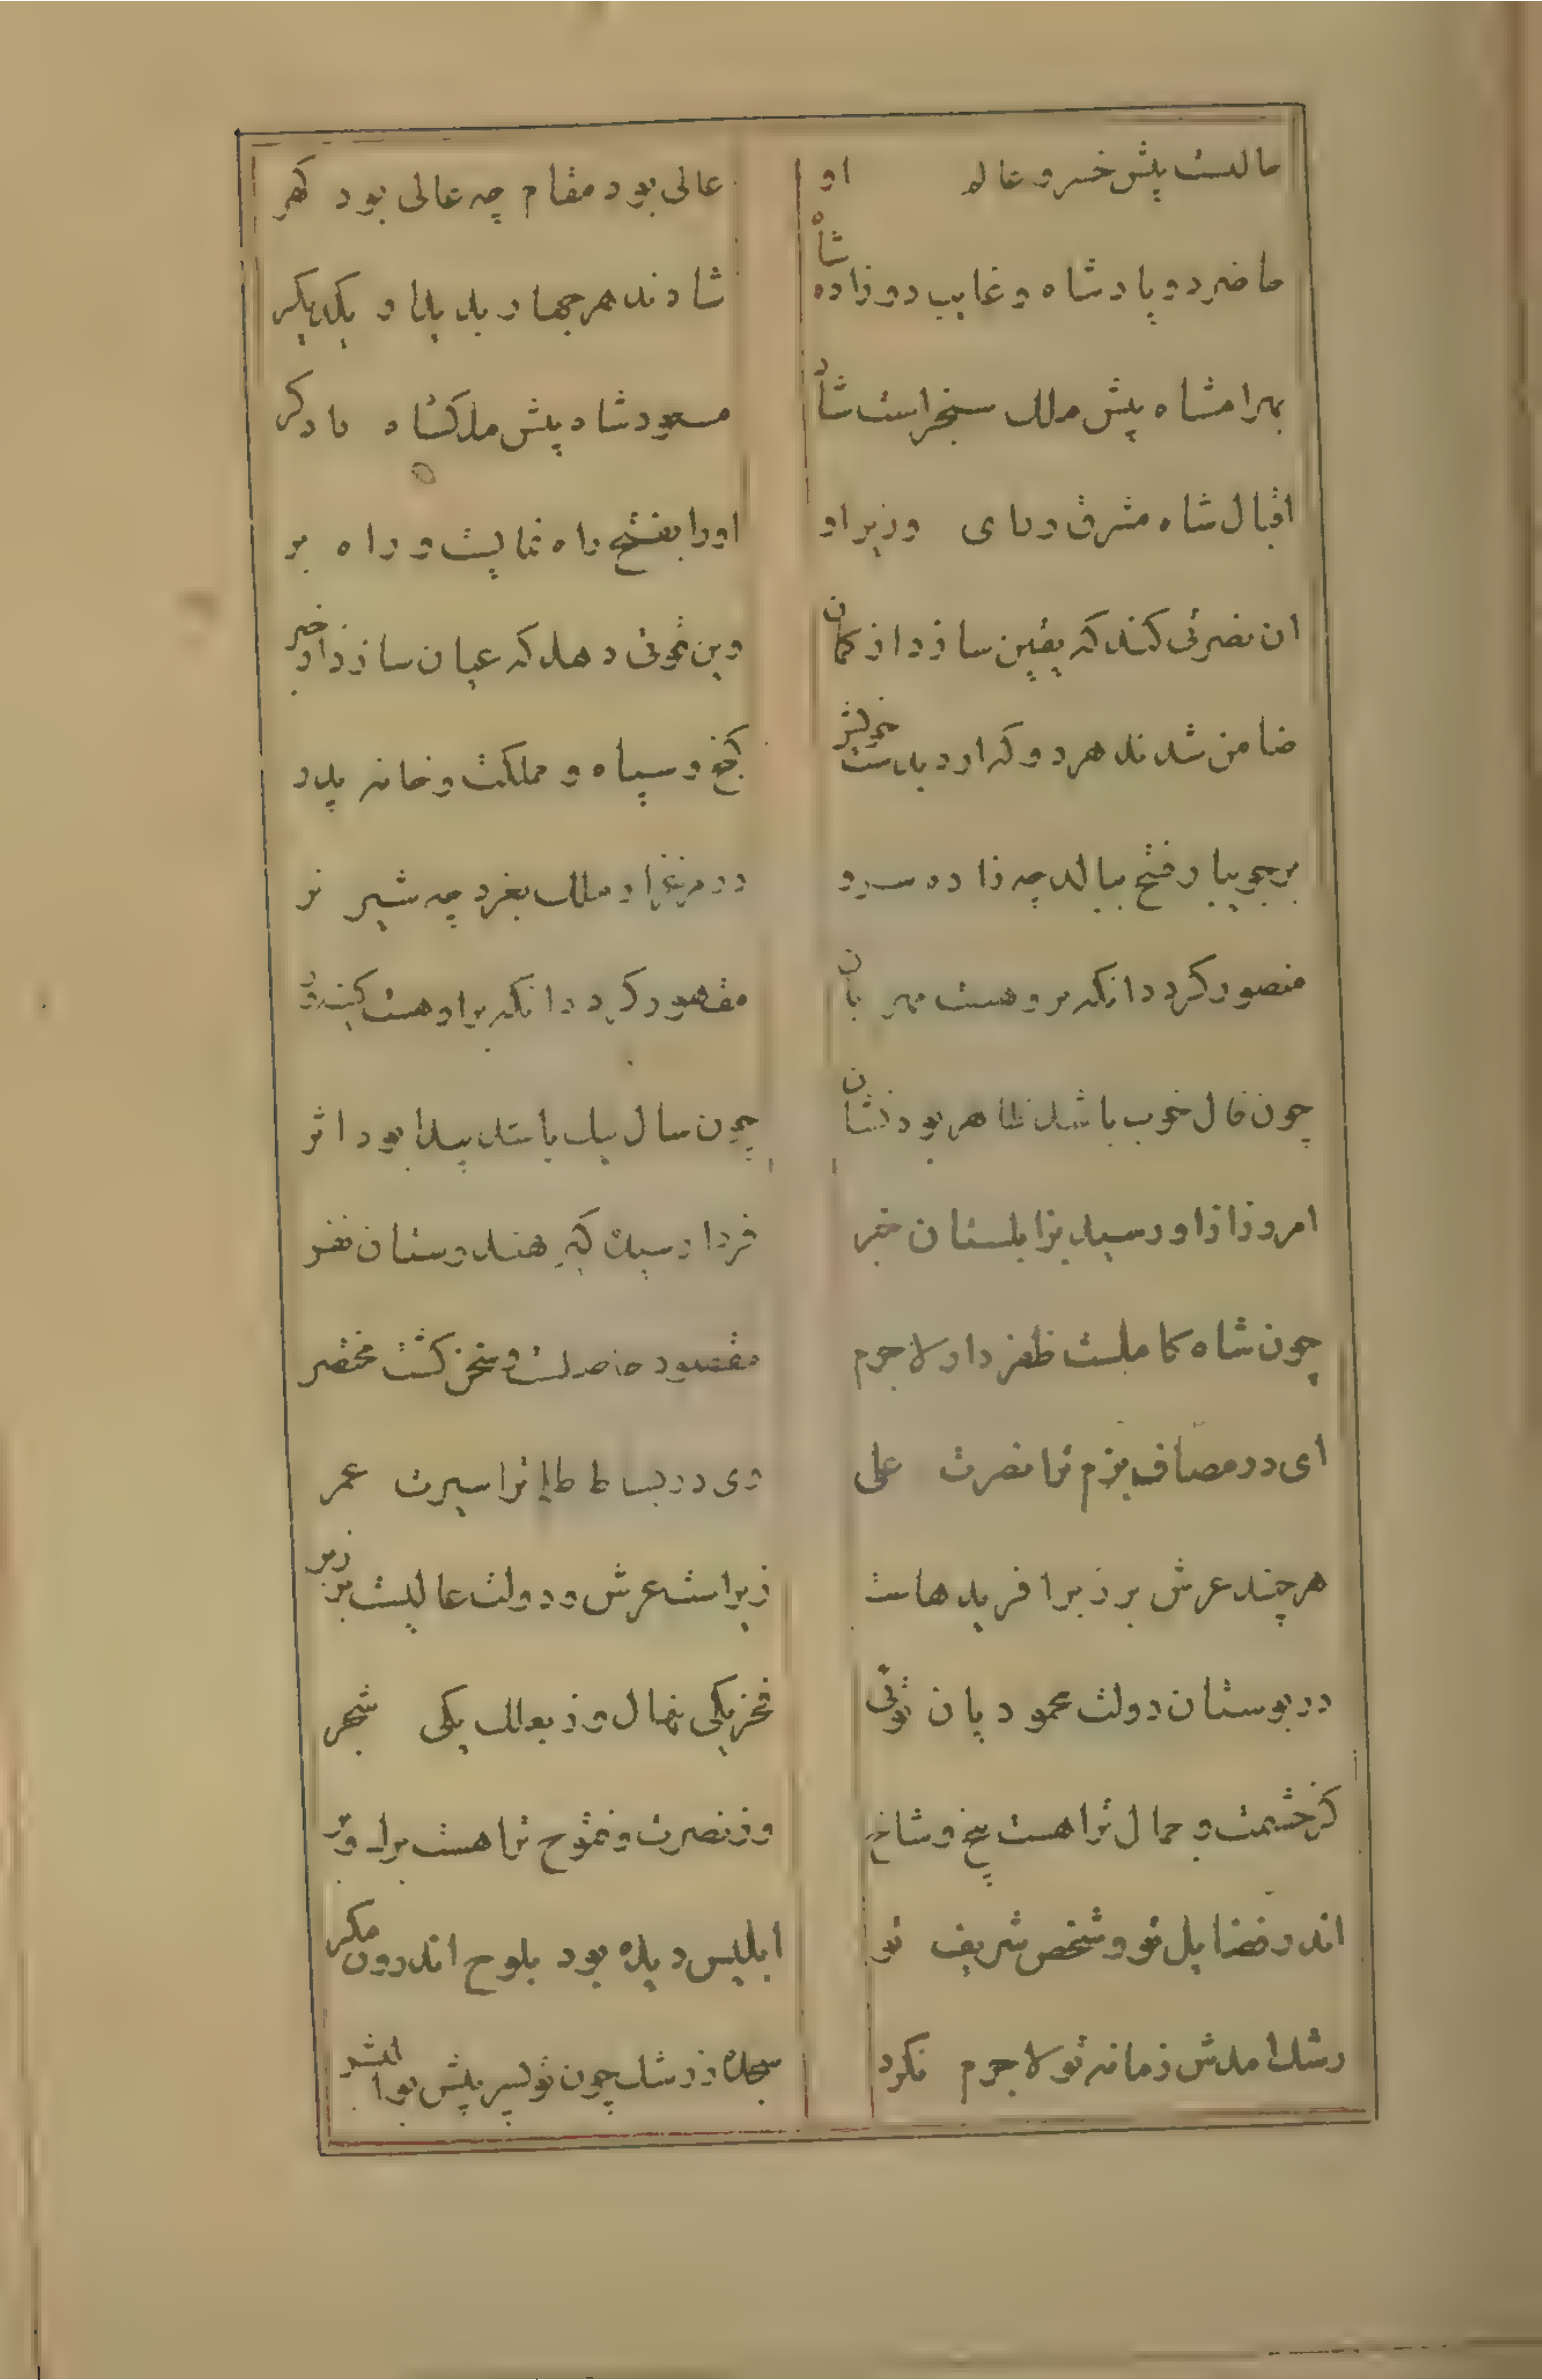 عالیست پیش خسرو عالم او عالی بود مقام چه عالی بود کهر
حاضر دو پادشاه و غایب دو زاده شاه شادند هر چهار بدیدار یکدیگر
بهرامشاه پیش ملک سنجر است شاد مسعود شاه پیش ملکشاه
اقبال شاه مشرق و رای وزیر او اورا بفتح راه نمایست و راه بر
ان نصرتی کند که یقین سازد از کمان وین دهد که عیان سازد از خبر
ضامن شدند هر دو که او را بدست خویش و سپاه و مملکت و خانه پدر
بر جویبار فتح ببالد چه زاده سرو در مرغزار ملک بغرد چه شیر نر
منصور کرد دانکه بر و هست مهربان مقهور کرد دانکه برو هست کینه ور
چون فال خوب باشد ظاهر بود نشان چون سال نیک باشد پیدا بود اثر
امروز ازو رسید بزابلستان خبر فردا رسد که هندوستان نفر
چون شاه کاملست ظفر دارد لاجرم مقصود حاصلست و سخن کشت مختصر
ای در مصاف بزم ترا نصرت علی وی در بساط ترا سیرت عمر
هر چند عرش بر زبر افریدهاست زیر است عرش و دولت عالیت بر زبر
در بوستان دولت محمودیان توئی فخر یکی نهال و ز ملک یکی شجر
کز حشمت و جمال ترا هست بیخ و شاخ وز نصرت و فتوح ترا هست برک و بر
اندر فضایل تو و شخص شریف تو ابلیس دیده بود بلوح اندرون مکر
رشک امدش زمانه تو لاجرم نکرد سجده ز رشک چون تو پسر پیش بوالبشر